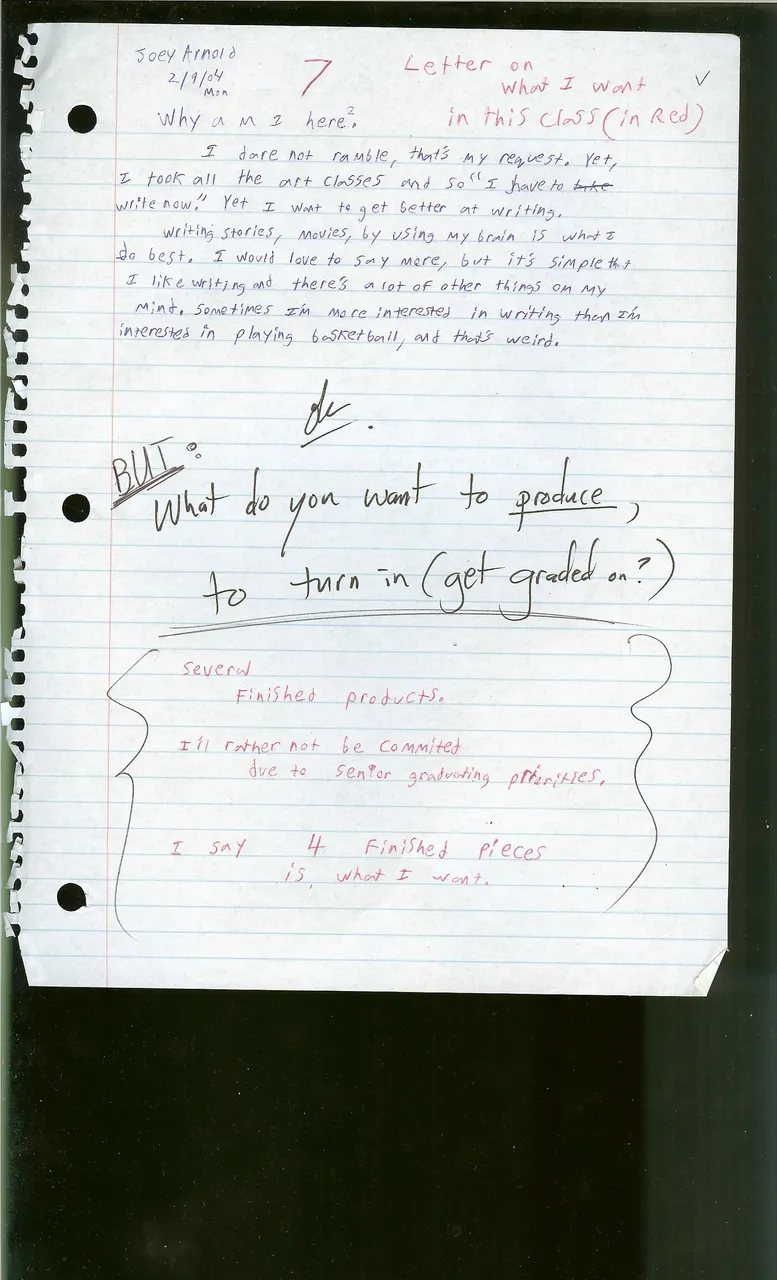 Joey Arnold
2/9/04
Mon
7
Letter on
what I want
in this class (in Red)
✓
Why am I here?
I dare not ramble, that's my request. Yet,
I took all the art classes and so "I have to take
write now." Yet I want to get better at writing.
Writing stories, movies, by using my brain is what I
do best. I would love to say more, but it's simple that
I like writing and there's a lot of other things on my
mind. Sometimes I'm more interested in writing than I'm
interested in playing basketball, and that's weird.
ok.
BUT:
What do you want to produce,
to turn in (get graded on?)
Several
Finished products.
I'll rather not be commited
due to senior graduating priorities.
I say 4 Finished pieces
is, what I want.